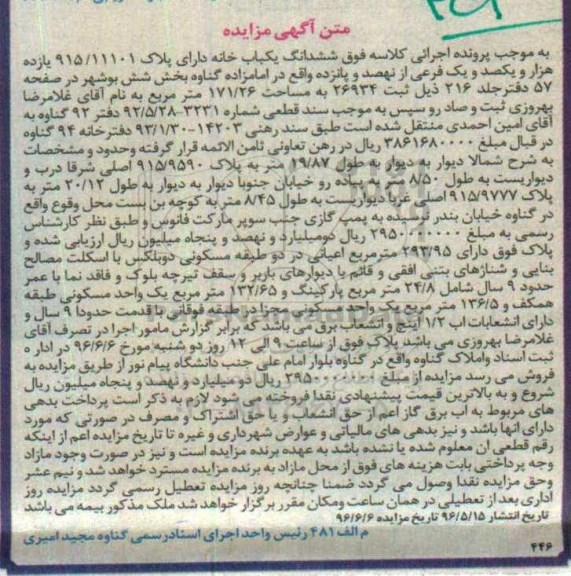 متن آگهی مزایده
به موجب پرونده اجرائی کلاسه فوق ششدانگ یکباب خانه دارای پلاک ۹۱۵/۱۱۱۰۱ یازده
هزار و یکصد و یک فرعی از نهصد و پانزده واقع در امامزاده گناوه بخش شش بوشهر در صفحه
۵۷ دفترجلد ۲۱۶ ذیل ثبت ۲۶۹۳۴ به مساحت ۱۷۱/۲۶ متر مربع به نام آقای غلامرضا
بهروزی ثبت و صادر و سپس به موجب سند قطعی شماره ۳۲۳۱-۹۲/۵/۲۸ دفتر ۹۲ گناوه به
آقای امین احمدی منتقل شده است طبق سند رهنی ۱۴۲۰۳-۹۳/۱/۳۰ دفترخانه ۹۴ گناوه
در قبال مبلغ ۳۸۶۱۶۸۰۰۰۰ ریال در رهن تعاونی ثامن الائمه قرار گرفته وحدود و مشخصات
به شرح شمالا دیوار به دیوار به طول ۱۹/۸۷ متر به پلاک ۹۱۵/۹۵۹۰ اصلی شرقا درب و
دیواریست به طول ۸/۵۰ متر به پیاده رو خیابان جنوبا دیوار به دیوار به طول ۲۰/۱۲ متر به
پلاک ۹۱۵/۹۷۷۷ اصلی غربا دیواریست به طول ۸/۴۵ متر به کوچه بن بست محل وقوع واقع
در گناوه خیابان بندر نرسیده به پمپ گازی جنب سوپر مارکت فانوس و طبق نظر کارشناس
رسمی به مبلغ ۲۹۵۰۰۰۰۰۰۰ ریال دومیلیارد و نهصد و پنجاه میلیون ریال ارزیابی شده و
پلاک فوق دارای ۲۹۳/۹۵ مترمربع اعیانی در دو طبقه مسکونی دوبلکس با اسکلت مصالح
بنایی و شناژهای بتنی افقی و قائم با دیوارهای باربر و سقف تیرچه بلوک و فاقد نما با عمر
حدود ۹ سال شامل ۲۴/۸ متر مربع پارکینگ و ۱۳۲/۶۵ متر مربع یک واحد مسکونی طبقه
همکف و ۱۳۶/۵ متر مربع یک واحد مسکونی مجزا در طبقه فوقانی با قدمت حدودا ۹ سال و
دارای انشعابات اب ۱/۲ اینچ و انشعاب برق می باشد که برابر گزارش مامور اجرا در تصرف آقای
غلامرضا بهروزی می باشد پلاک فوق از ساعت ۹ الی ۱۲ روز دو شنبه مورخ ۹۶/۶/۶ در اداره
ثبت اسناد واملاک گناوه واقع در گناوه بلوار امام علی جنب دانشگاه پیام نور از طریق مزایده به
فروش می رسد مزایده از مبلغ ۲۹۵۰۰۰۰۰۰۰ ریال دو میلیارد و نهصد و پنجاه میلیون ریال
شروع و به بالاترین قیمت پیشنهادی نقدا فروخته می شود لازم به ذکر است پرداخت بدهی
های مربوط به اب برق گاز اعم از حق انشعاب و یا حق اشتراک و مصرف در صورتی که مورد
دارای انها باشد و نیز بدهی های مالیاتی و عوارض شهرداری و غیره تا تاریخ مزایده اعم از اینکه
رقم قطعی ان معلوم شده یا نشده باشد به عهده برنده مزایده است و نیز در صورت وجود مازاد
وجه پرداختی بابت هزینه های فوق از محل مازاد به برنده مزایده مسترد خواهد شد و نیم عشر
وحق مزایده نقدا وصول می گردد ضمنا چنانچه روز مزایده تعطیل رسمی گردد مزایده روز
اداری بعد از تعطیلی در همان ساعت ومکان مقرر برگزار خواهد شد ملک مذکور بیمه می باشد
تاریخ انتشار ۹۶/۵/۱۵ تاریخ مزایده ۹۶/۶/۶
م الف ۴۸۱ رئیس واحد اجرای اسناد رسمی گناوه مجید امیری
۴۴۶